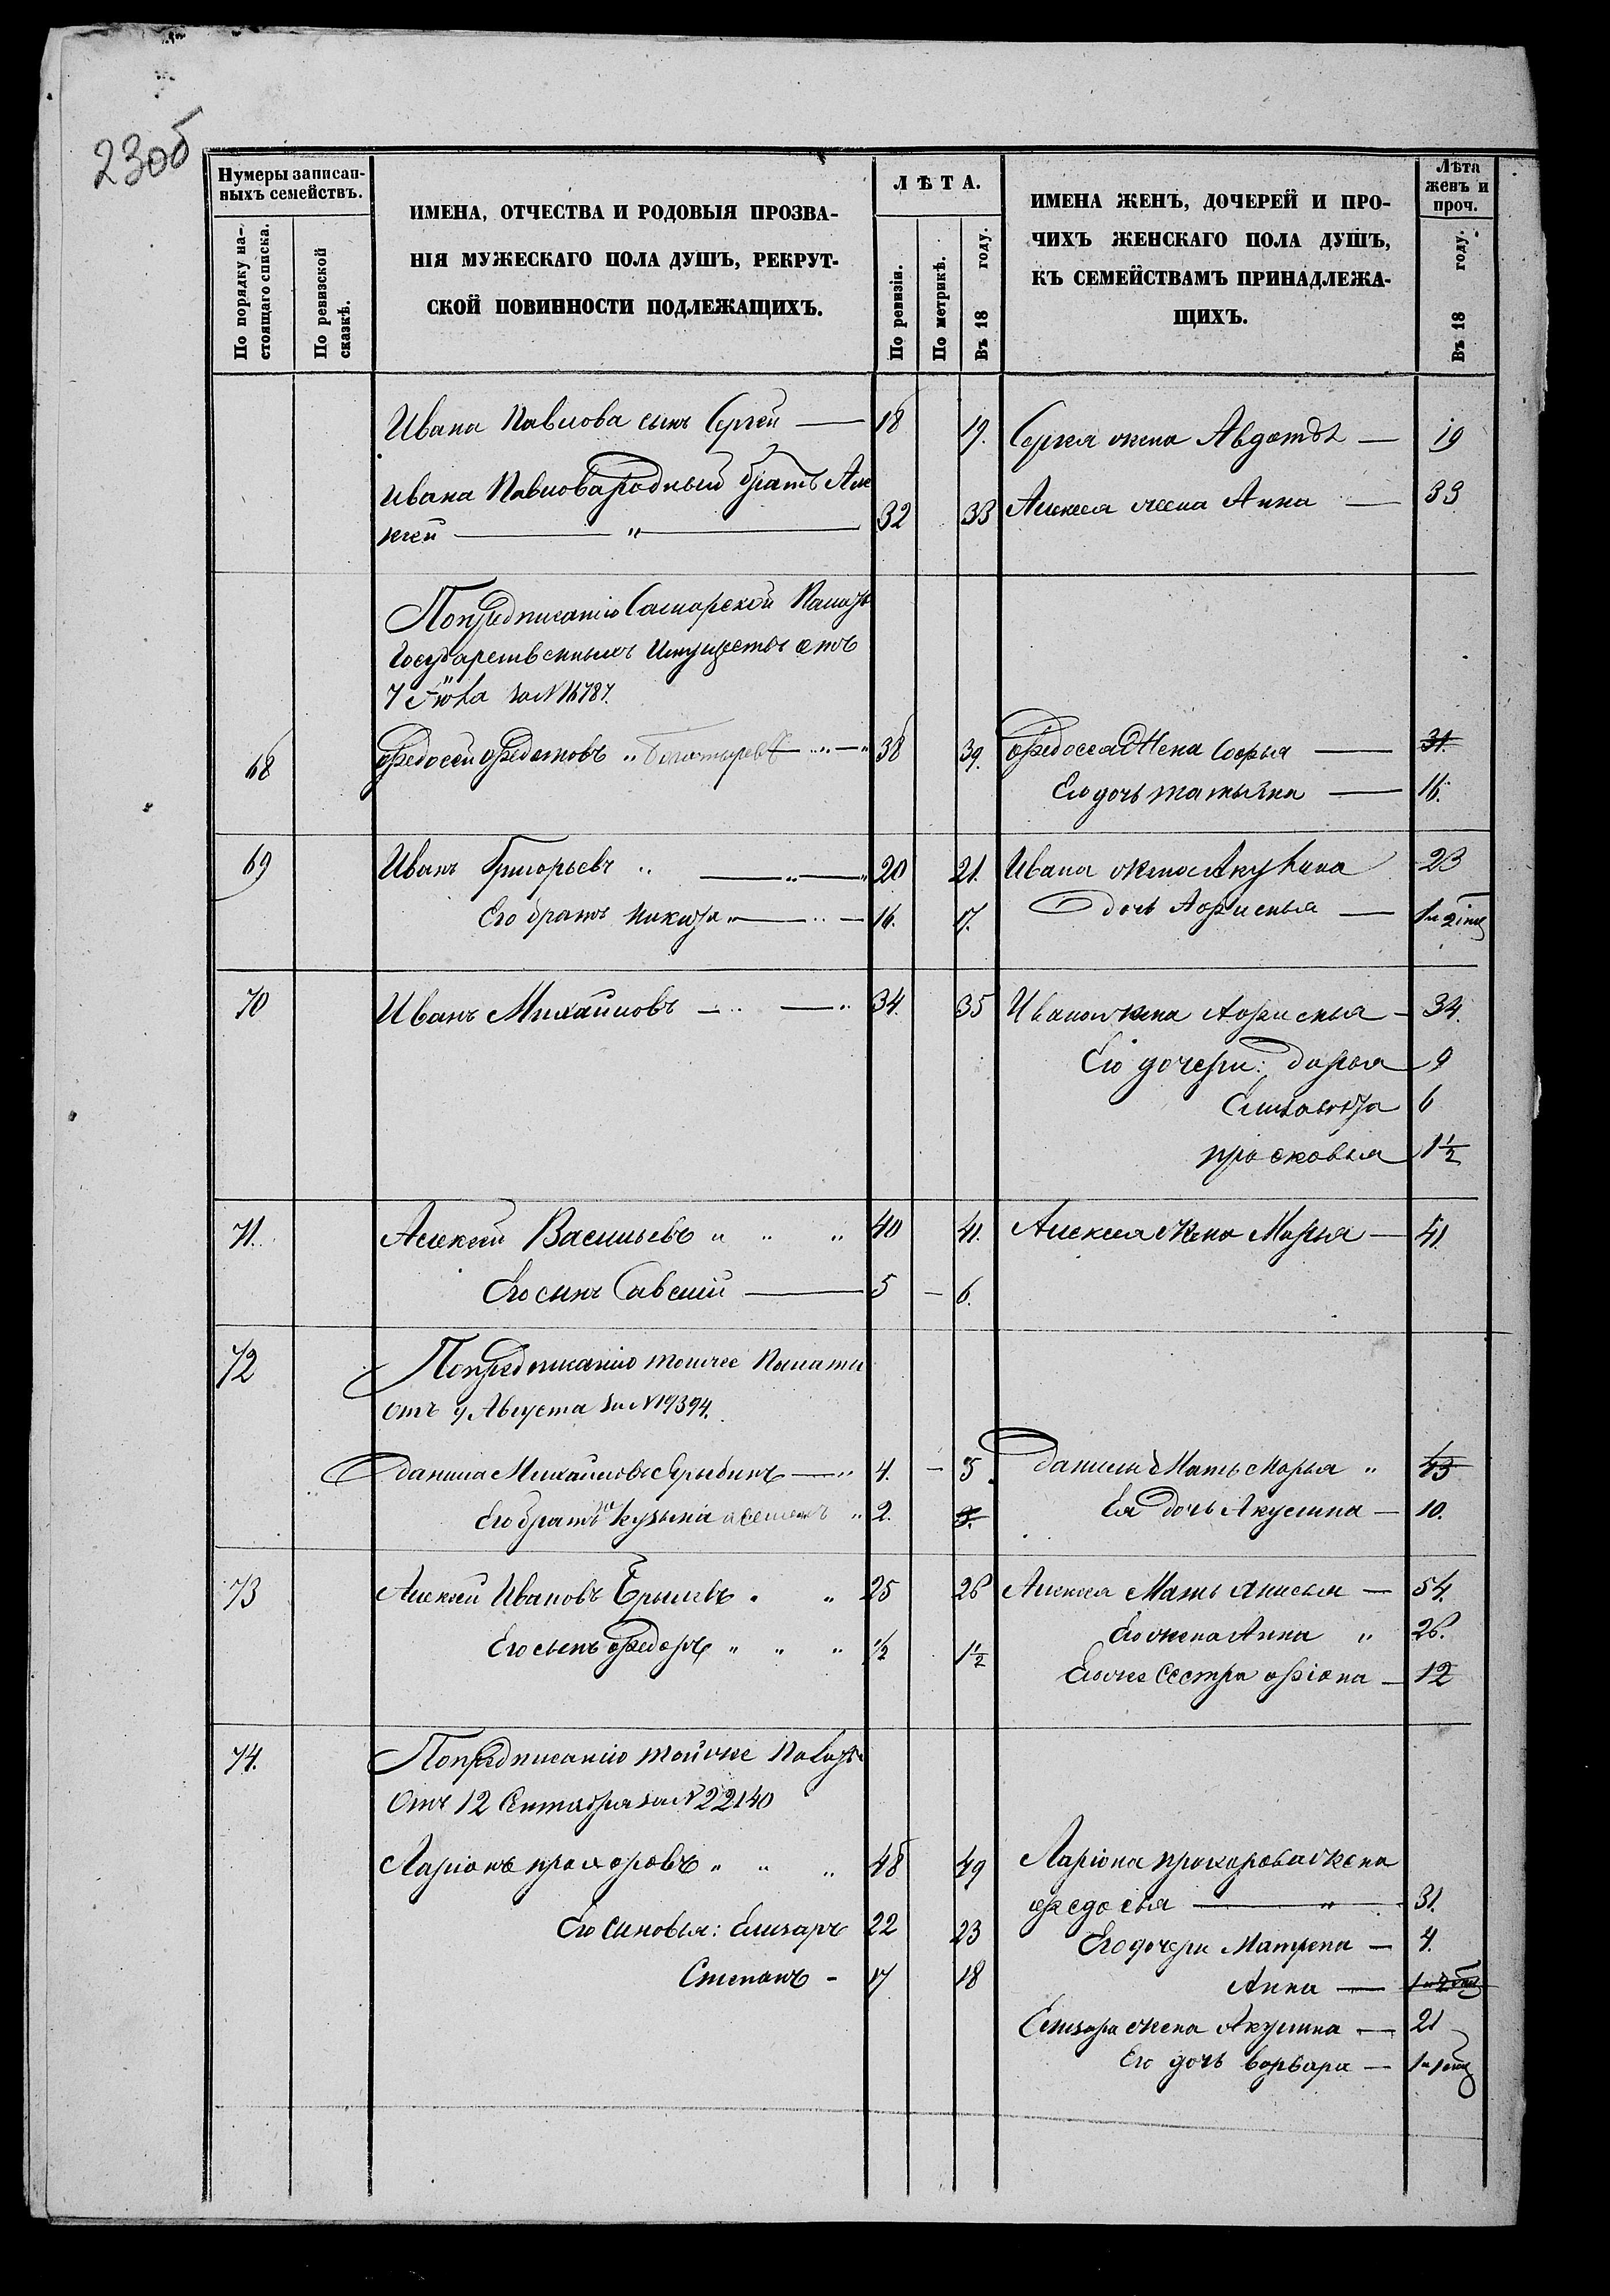 23об
Нумеры записан-
ныхъ семействъ.
По порядку на-
стоящаго списка.
По ревизской
сказкѣ.
ИМЕНА, ОТЧЕСТВА И РОДОВЫЯ ПРОЗВА-
НІЯ МУЖЕСКАГО ПОЛА ДУШЪ, РЕКРУТ-
СКОЙ ПОВИННОСТИ ПОДЛЕЖАЩИХЪ.
ЛѢТА.
По ревизіи.
По метрикѣ.
Въ 18 году.
ИМЕНА ЖЕНЪ, ДОЧЕРЕЙ И ПРО-
ЧИХЪ ЖЕНСКАГО ПОЛА ДУШЪ,
КЪ СЕМЕЙСТВАМЪ ПРИНАДЛЕЖА-
ЩИХЪ.
Лѣта
женъ и
проч.
Въ 18 году.
Ивана Павлова сынъ Сергей — 18 19. Сергея жена Авдотья — 19
Ивана Павлова родный братъ Але
ксей — " — 32 33 Алексея жена Анна — 33
По предписанію Самарской Палаты
Государственныхъ Имуществъ отъ
7 Іюля за N 16787.
68 Федосей Федотовъ " Богатыревъ — " — " 38 39. Федосея жена Софья — 31.
Его дочь татьяна — 16.
69 Иванъ Григорьевъ " — " — " 20 21. Ивана жена Акулина 23
Его братъ Никита " — " — 16. 17. дочь Африсинья —
70 Иванъ Михайловъ — " — " 34. 35 Ивана жена Африсинья — 34.
Его дочери: дарья 9
Елизавета 6
прасковья 1 1/2
71. Алексей Васильевъ " " " 40 41. Алексея жена Марья — 41.
Его сынъ Савелий — 5 — 6.
72 По предписанію тойже Палаты
отъ 9 Августа за N 19394.
данила Михайловъ — " 4. — 5. данилы Мать Марья " 43
Его братъ кузьма " 2. 3. Ея дочь Акулина — 10.
73 Алексей Ивановъ " " 25 26 Алексея Мать Анисья — 54.
Его сынъ Федоръ " " " 1/2 1 1/2 Его жена Анна " 26.
Его же Сестра — 12
74. По предписанію тойже Палаты
Отъ 12 Сентября за N 22140
Ларіонъ прохоровъ " " " 48 49 Ларіона прохорова жена
федосья — " — 31.
Его сыновья: Елизаръ 22 23 Его дочери Матрена — 4.
Степанъ — 17 18 Анна —
Елизара жена Акулина — 21
Его дочь варвара —